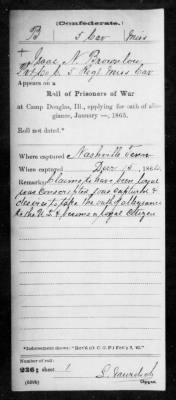 (Confederate.)
B 5 Cav Miss
Isaac N. Brownlow
Pvt Co K, 5 Regt Miss Cav
Appears on a
Roll of Prisoners of War
at Camp Douglas, Ill., applying for oath of alle-
giance, January —, 1865.
Roll not dated.*
Where captured Nashville Tenn
When captured Decr 15, 1864.
Remarks: Claims to have been loyal
was conscripted was captured &
desires to take the oath of allegiance
to the U.S. & become a loyal citizen
Number of roll:
236; sheet 1
Copyist.